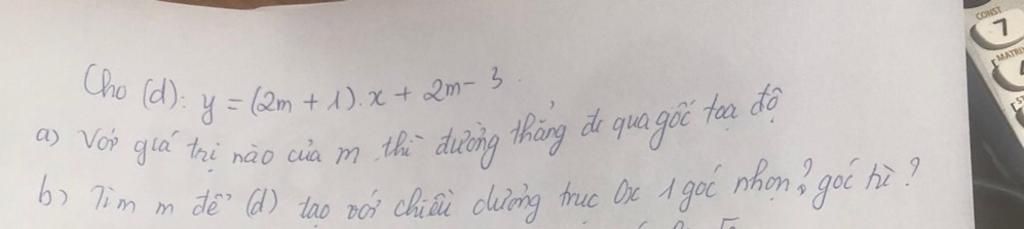 Cho (d): y = (2m + 1).x + 2m - 3.
a) Với giá trị nào của m thì đường thẳng đi qua gốc toạ độ
b) Tìm m để (d) tạo với chiều dương trục Ox 1 góc nhọn? góc tù?
CONST
7